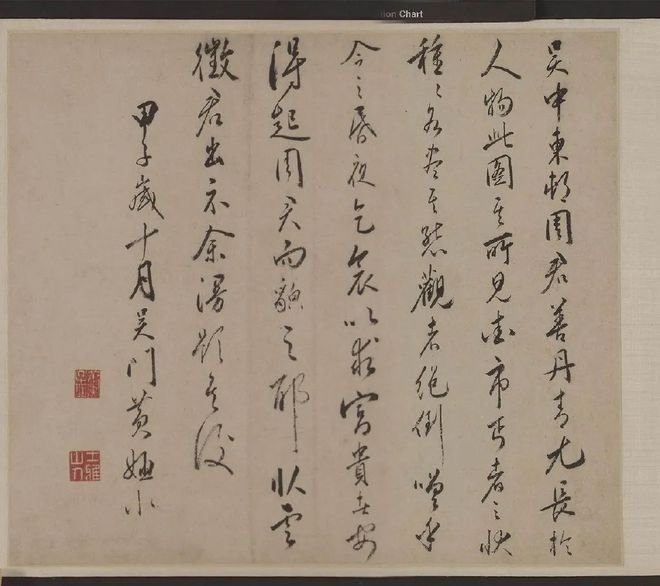 tion Chart
吳中東邨周君善丹青尤長於
人物此圖其所見市丐者之狀
種〻各盡其態觀者絕倒嗟乎
今之昏夜乞哀以求富貴者安
得起周君而貌之耶雲
徵君出示余漫題其後
甲子歲十月吳門黃姬水
士雅山人